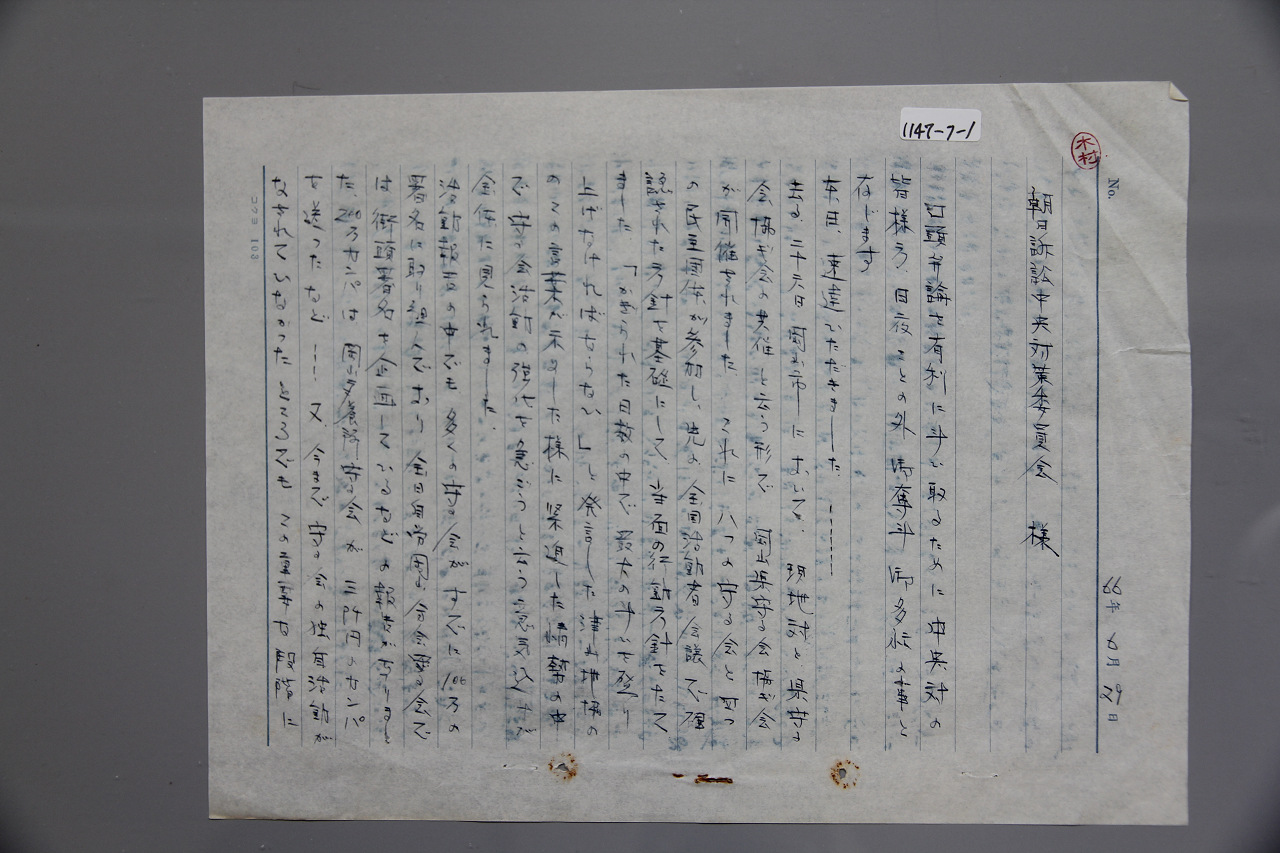 1147-7-1
木村
No.
66年 6月 29日
朝日訴訟中央対策委員会 様
口頭弁論を有利に斗い取るために中央対の
皆様方、日夜ことの外 御奮斗 御多忙の事と
存じます
本日、速達いただきました。------
去る、二十六日 岡山市において、現地対と県守る
会協ギ会の共催と云う形で 岡山県守る会協ギ会
が開催されました これに 八つの守る会と 四つ
の民主団体が参加し、先の 全国活動者会議で確
認された方針を基礎にして、当面の行動方針をたて
ました 「かぎられた日数の中で 最大の斗いを盛り
上げなければならない」と発言した津山地協の
のこの言葉が示した様に 緊迫した情勢の中
で守る会活動の強化を急ごうと云う意気込みが
全体に見られました。
活動報告の中でも 多くの守る会が すでに 100万の
署名に取り組んでおり 全日自労岡山分会守る会で
は街頭署名を企画しているなどの報告があり
た、200万カンパは 守る会が 三千円のカンパ
を送ったなど---- 又、今まで 守る会の独自活動が
なされていなかったところでも この重要な段階に
コクヨ 108